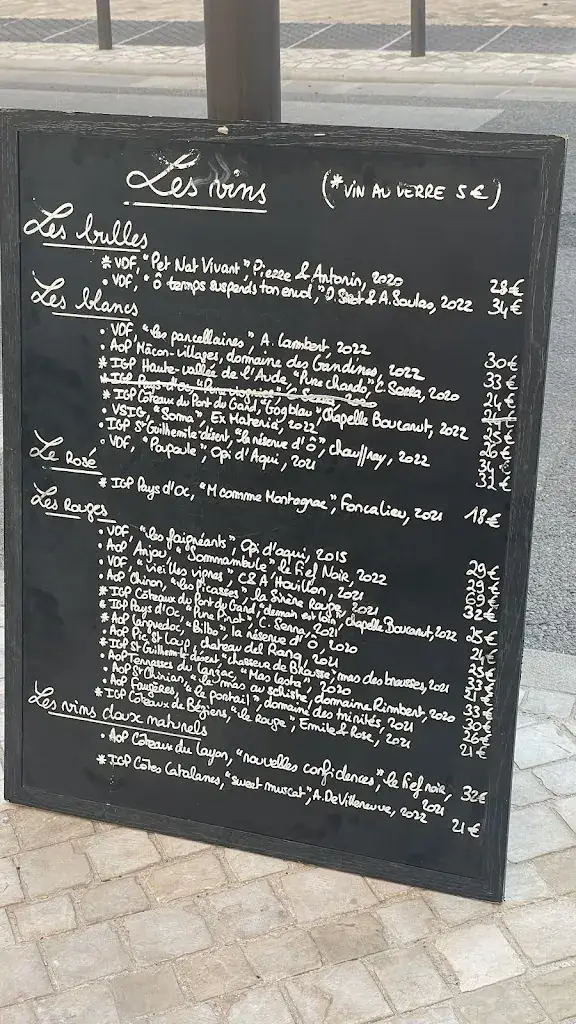 Les vins (*VIN AU VERRE 5€)
Les bulles
* VDF, "Pet Nat Vivant", Pierre & Antonin, 2020 28€
• VDF, "Ô temps suspends ton envol", & A. Soulas, 2022 34€
Les blancs
• VDF, "les parcellaires", A. Lambert, 2022 30€
• AoP Mâcon-villages, domaine des Gandines, 2022 33€
* IGP Haute-vallée de l'Aude, "Pure chardo", C. Serra, 2020 24€
* IGP Pays d'Oc, C. Serra, 2020 24€
* IGP Côteaux du Pont du Gard, "Gogblau", Chapelle Boucarut, 2022 25€
• VSIG, "Soma", Ex Materia, 2022 26€
• IGP St Guilhem le désert, "la réserve d'Ô", Chauffray, 2022 34€
• VDF, "Poupoule", Opi d'Aqui, 2021 32€
Le rosé
* IGP Pays d'Oc, "M comme Montagnac", Foncalieu, 2021 18€
Les Rouges
• VDF, "les fainéants", Opi d'aqui, 2015 29€
• AoP Anjou, "Somnambule", le Fief Noir, 2022 29€
• VDF, "Vieilles vignes", C & A Houillon, 2021
• AoP Chinon, "les Picasses", la Sirène Rouge, 2021 32€
* IGP Côteaux du Pont du Gard, "demain est loin", chapelle Boucarut, 2022 25€
* IGP Pays d'Oc, "Pure Pinot", C. Serra, 2021 24€
• AoP Languedoc, "Bilbo", la réserve d'Ô, 2020
• AoP Pic St Loup, chateau del Rang, 2021
* IGP St Guilhem le désert, "chasseur de", mas des brousses, 2021
• AoP Terrasses du Larzac, "Mas", 2020
• AoP St Chinian, "le mas au schiste", domaine Rimbert, 2020 33€
• AoP Faugères, "le portail", domaine des trinités, 2021
* IGP Côteaux de Béziers, "le Rouge", Emile & Rose, 2021 21€
Les vins doux naturels
• AoP Côteaux du Layon, "nouvelles confidences", le fief noir, 2021 32€
* IGP Côtes Catalanes, "sweet muscat", A. De Villeneuve, 2022 21€